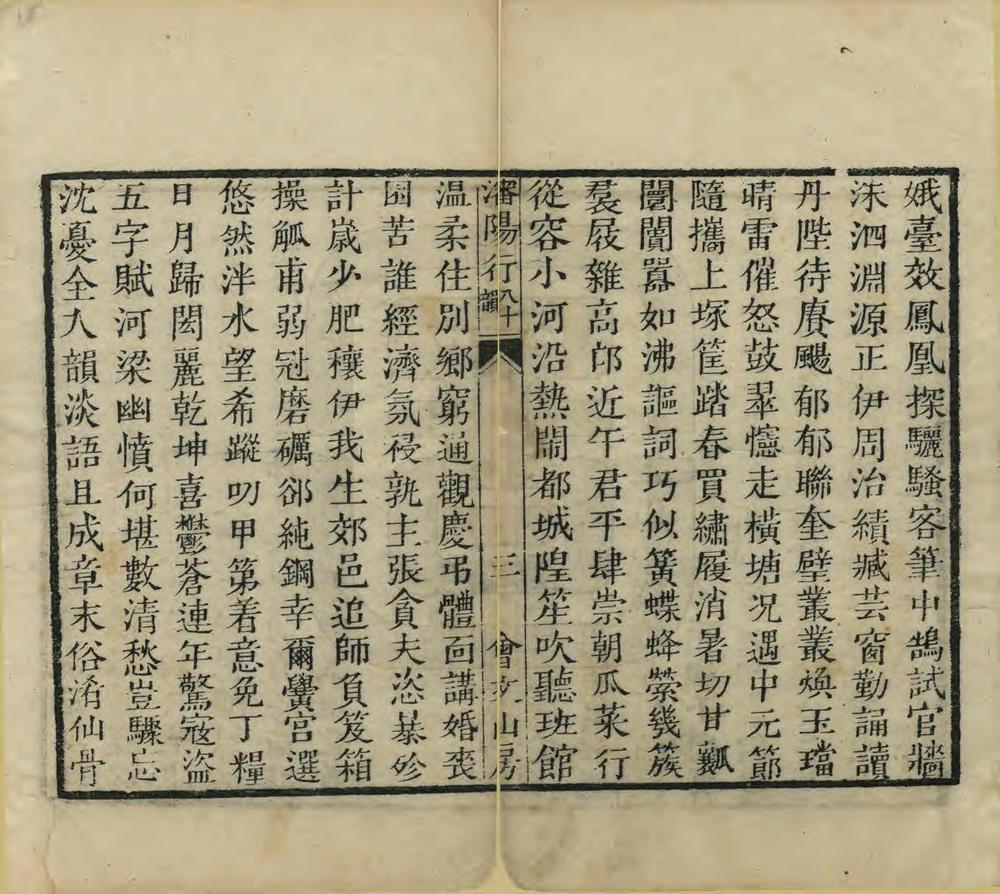 娥臺效鳳凰探驪騷客筆中鵠試官牆
洙泗淵源正伊周治績臧芸窗勤誦讀
丹陛待賡颺郁郁聯奎璧叢叢煥玉璫
晴雷催怒鼓翠幰走橫塘况遇中元節
隨攜上塚筐踏春買繡履消暑切甘瓤
闤闠囂如沸謳詞巧似簧蝶蜂縈幾簇
裠屐雜高邙近午君平肆崇朝瓜菜行
從容小河沿熱閙都城隍笙吹聽班館
瀋陽行八十韻 三 會文山房
温柔住別鄉窮通觀慶弔體面講婚喪
園苦誰經濟氛祲孰主張貪夫恣暴殄
計歲少肥穰伊我生郊邑追師負笈箱
操觚甫弱冠磨礪郤純鋼幸爾黌宮選
悠然泮水望希蹤叨甲第着意免丁糧
日月歸閎麗乾坤喜鬱蒼連年驚寇盜
五字賦河梁幽憤何堪數清愁豈驟忘
沈憂全入韻淡語且成章末俗淆仙骨